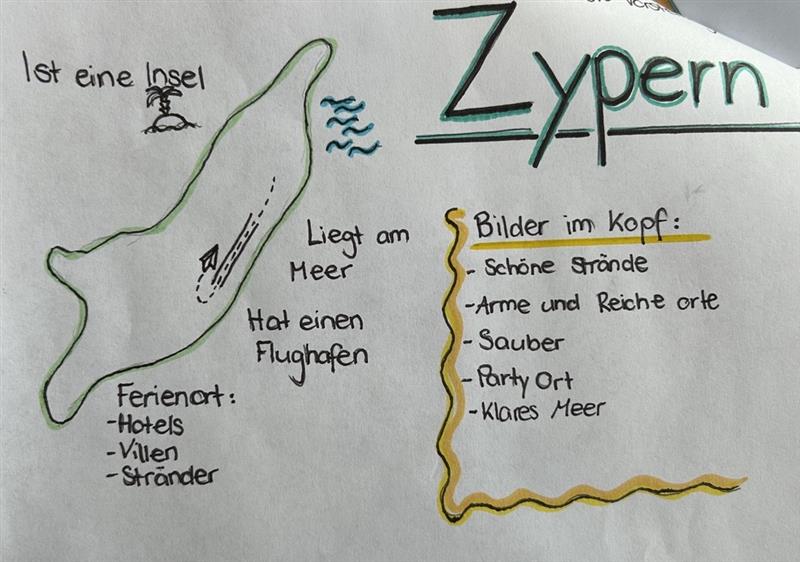 Zypern
Ist eine Insel
Liegt am
Meer
Hat einen
Flughafen
Ferienort:
-Hotels
-Villen
-Stränder
Bilder im Kopf:
- Schöne Strände
-Arme und Reiche orte
-Sauber
-Party Ort
-Klares Meer